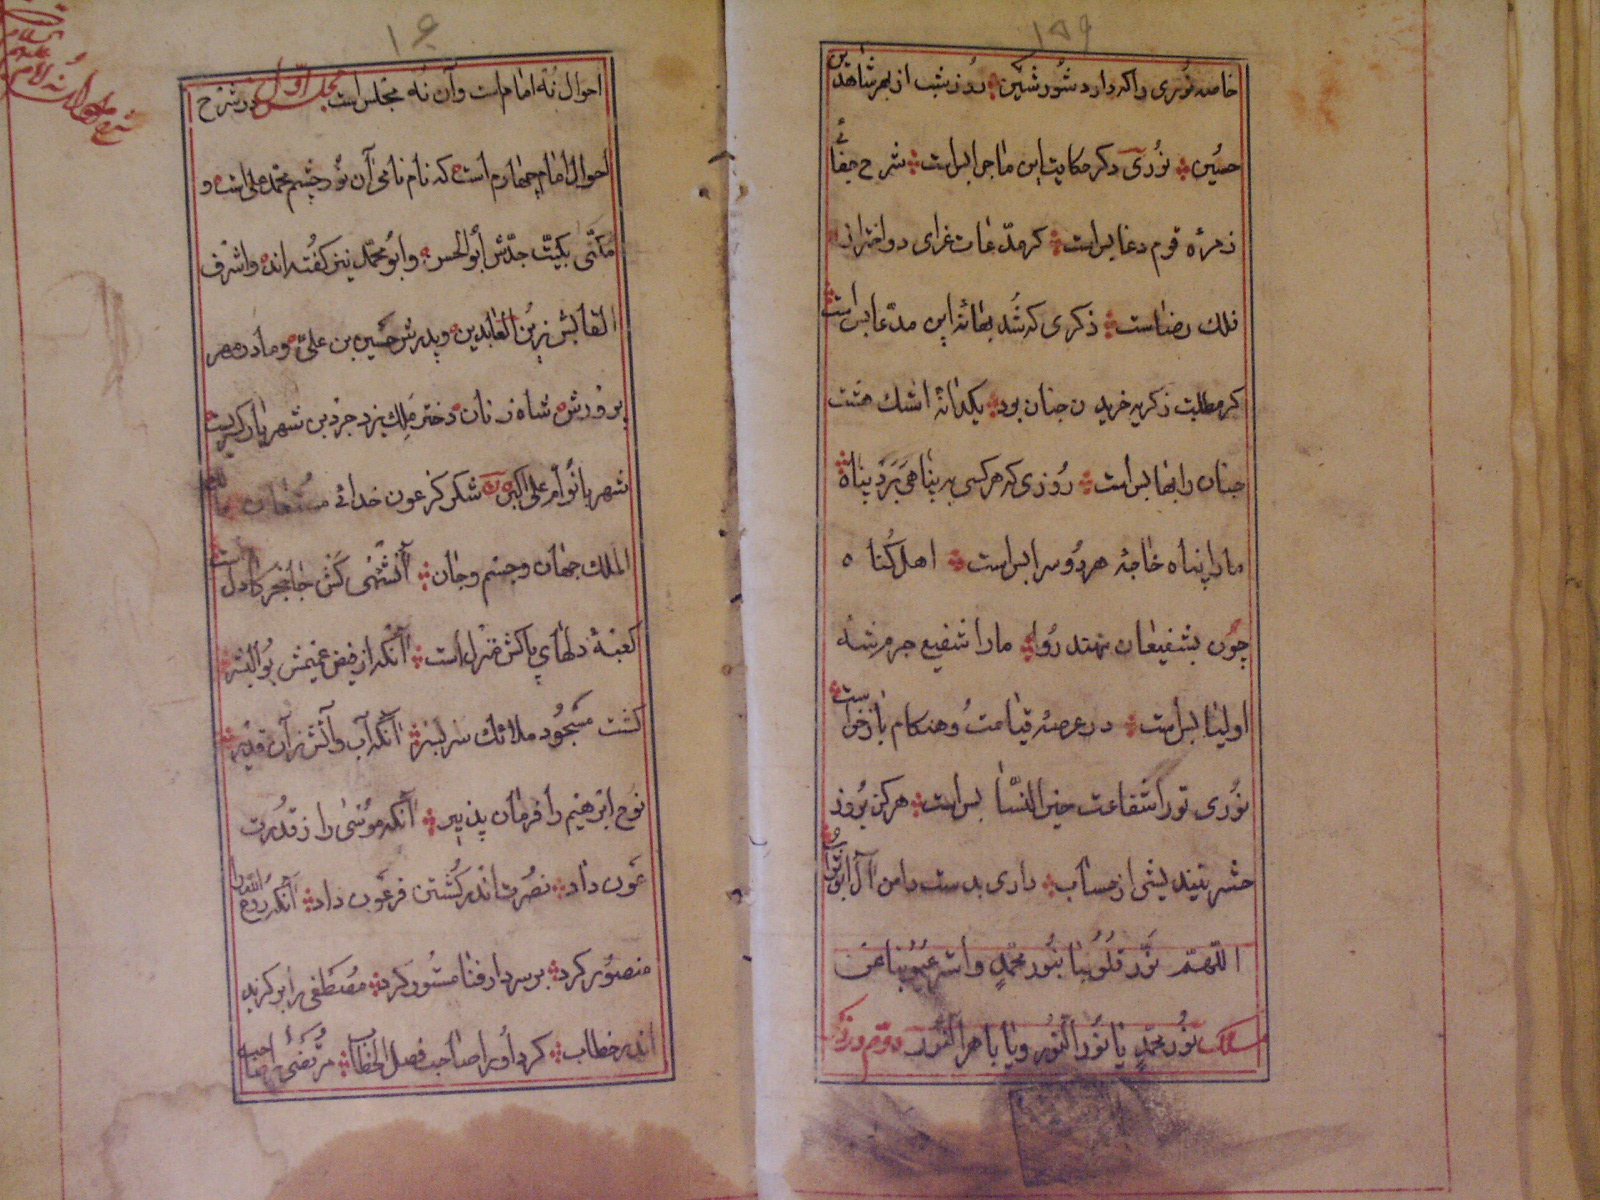 ۱۵۹
خاصه نوری را که دارد شور شین روز شب از بهر شاهدین
حسین نوری دکر حکایت این ماجرا بس است شرح جفای
زمره قوم دغا بس است کر مدعات غرای دو اختران
فلک رضاست ذکری که شد بهانه این مدعا بس است
کر مطلبت ذکر به خریدن جنان بود یکدانه اشک هشت
جنان را بها بس است روزی که هر کسی به پناهی برد پناه
ما را پناه خاجه هر دو سرا بس است اهل کناه
چون بشفیعان نهند رو ما را شفیع جرم شه
اولیا بس است در عرصه قیامت و هنکام بازخواست
نوری تو را شفاعت خیر النسا بس است هرکز بروز
حشر نیندیشی از حساب داری بدست دامن آل ابوتراب
اللهم نور قلوبنا بنور محمد واستر عیوبنا عن
نور محمد یا نور النور ویا باهر النور
۱۶
احوال نه امام است وآن نه مجلس است مجلس اول در شرح
احوال امام چهارم است که نام نامی آن نور چشم محمد علی است و
مکنی بکنیت جدش ابو الحسن وابو محمد نیز کفته اند واشرف
القابش زین العابدین وپدرش حسین بن علی ومادر مهر
پرورش شاه زنان دختر ملک یزدجرد بن شهریار
شهربانو ام علی اکبر شکر کز عون خدائ مستعان
الملک جهان وجسم وجان آن شهی کش جا بخجر کاه دل است
کعبهٔ دلهای پاکش منزل است آنکه از فیض عمیمش بو البشر
کشت مسجود ملائک سر بسر آنکه آب وآتش
نوح ابرهیم را فرمان پذیر آنکه موسی را ز قدرت
عون داد نصرت اندر کشتن فرعون داد آنکه روح الله را
منصور کرد بر سر دار فنا مستور کرد مصطفی را بو کزید
اندر خطاب کرد او را صاحب فصل الخطاب مرتضی را صاحب